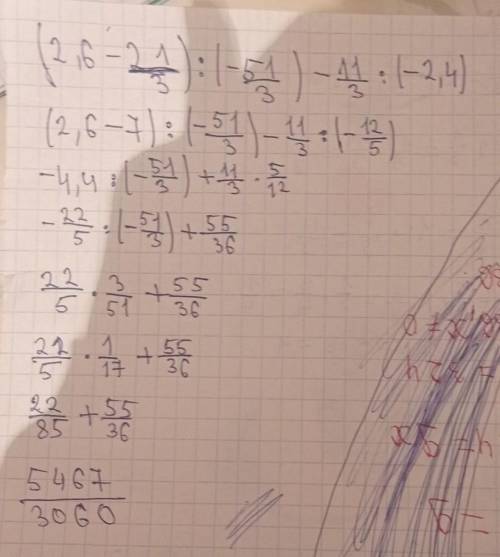 (2,6 - 21/3) : (-51/3) - 11/3 : (-2,4)
(2,6 - 7) : (-51/3) - 11/3 : (-12/5)
-4,4 : (-51/3) + 11/3 · 5/12
-22/5 : (-51/3) + 55/36
22/5 · 3/51 + 55/36
22/5 · 1/17 + 55/36
22/85 + 55/36
5467/3060